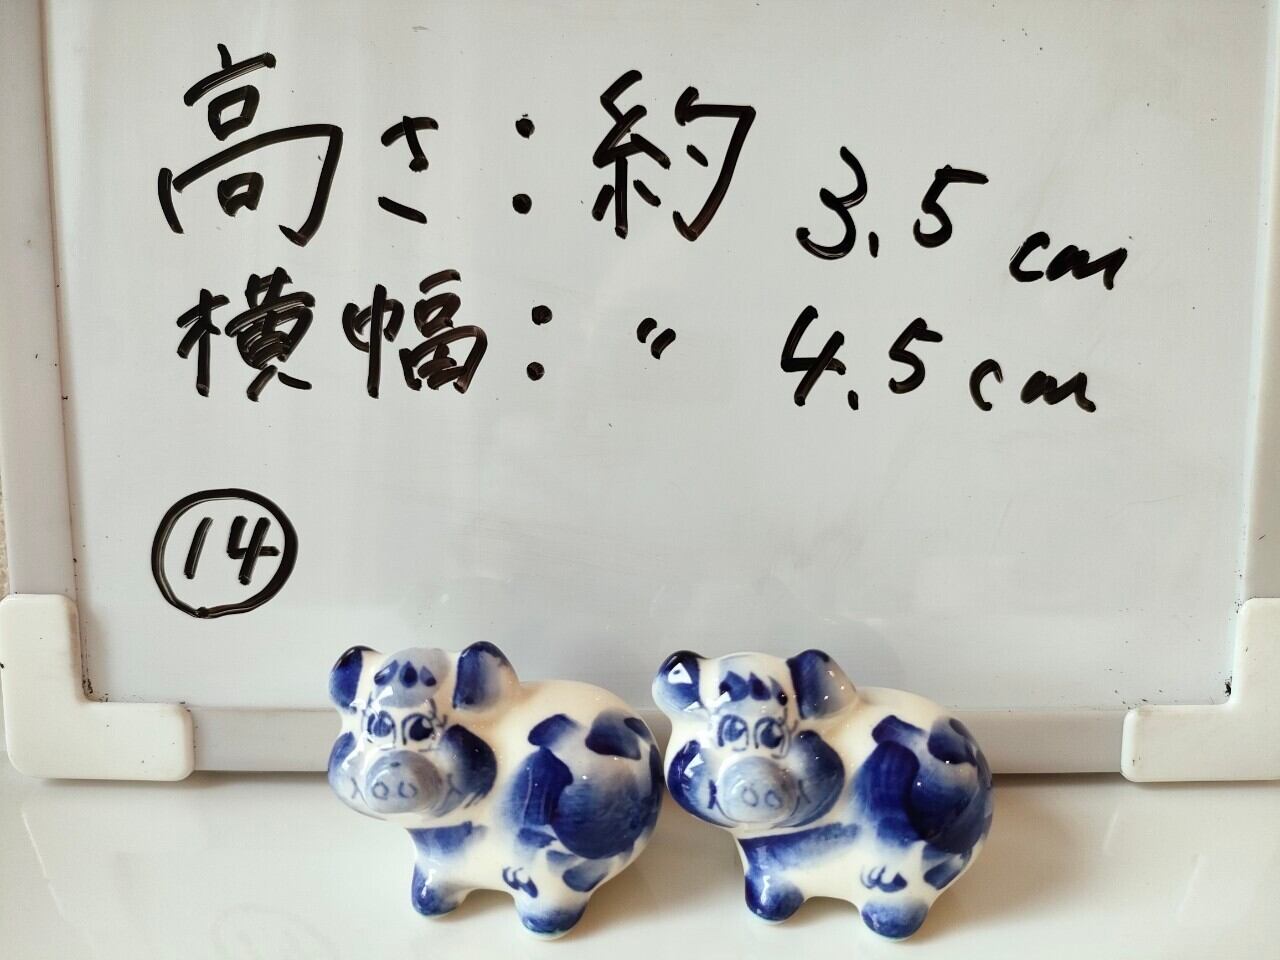 高さ:約 3.5cm
横幅:〃 4.5cm
⑭